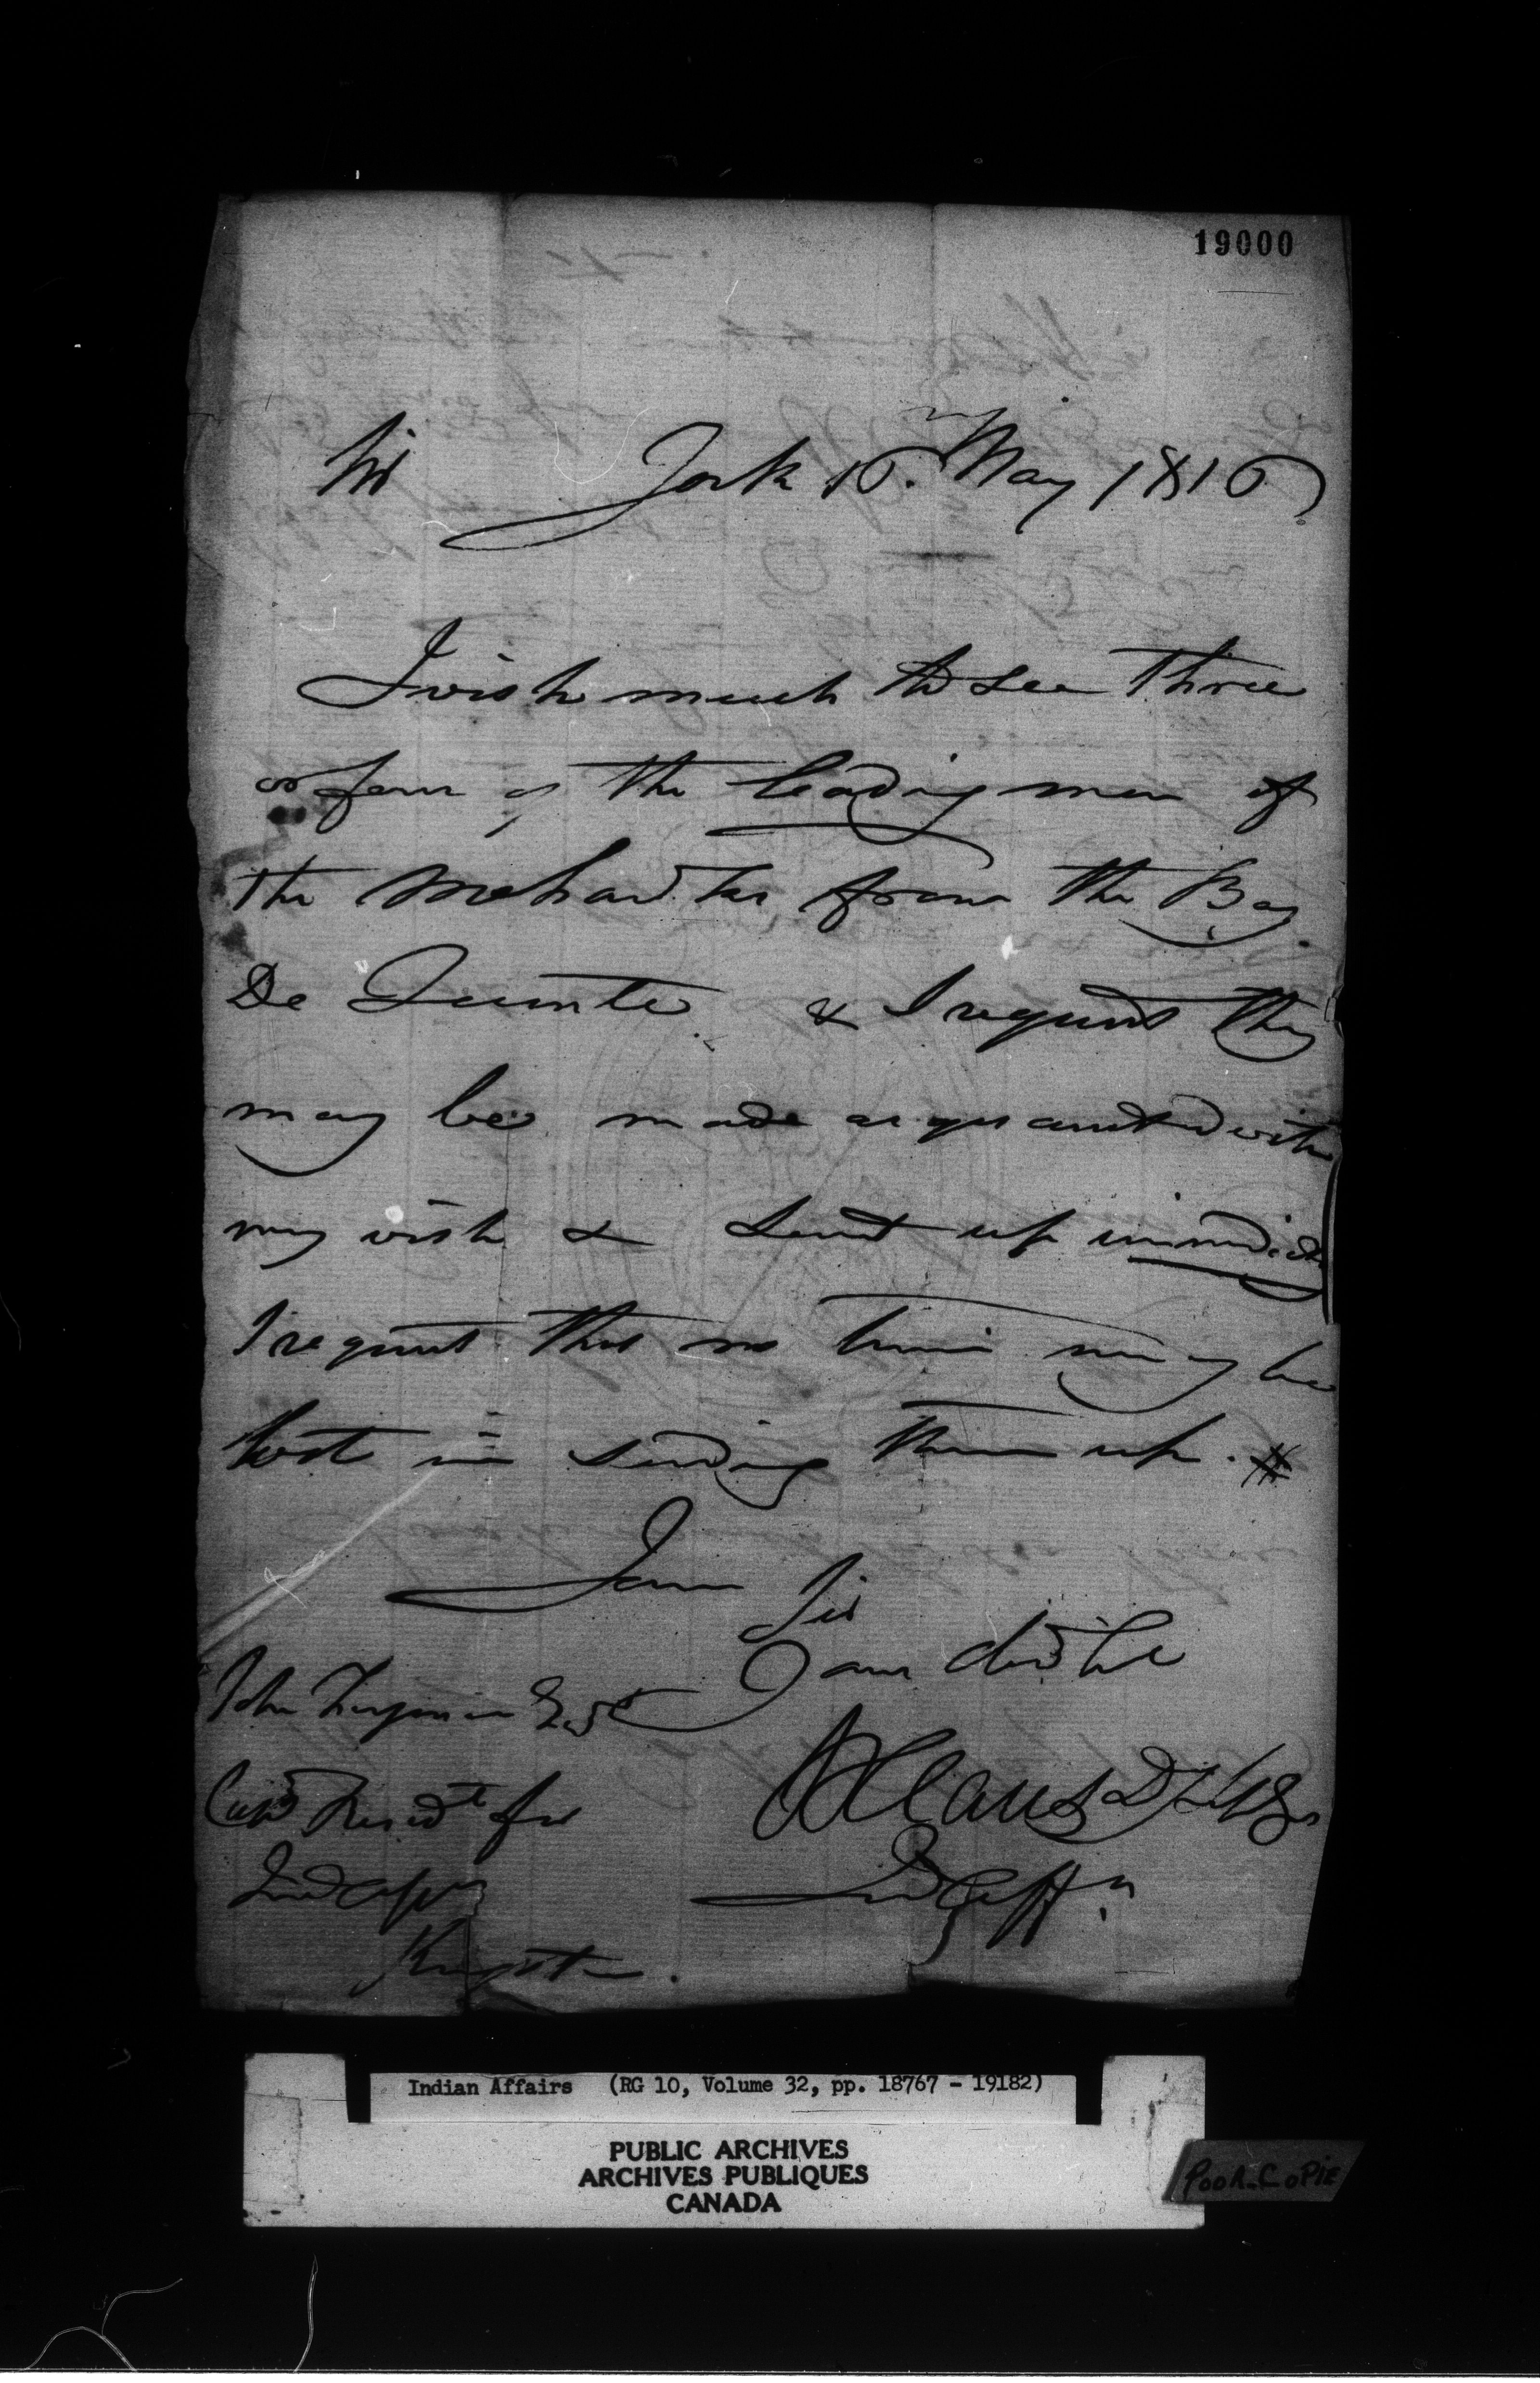 19000
Sir York 16 May 1816
I wish much to see Three
or four of the leading men of
the Mohawks from the Bay
De Quinte & I request they
may be made acquainted with
my wish & sent up immediate
I request that no time may be
lost in sending them up. #
I am
Sir
Your
John Ferguson Esqr
Capt Residt for
W Claus D
Ind Aff
Ind Affrs
Kingston.
Indian Affairs (RG 10, Volume 32, pp. 18767 - 19182)
PUBLIC ARCHIVES
ARCHIVES PUBLIQUES
CANADA
POOR COPIE